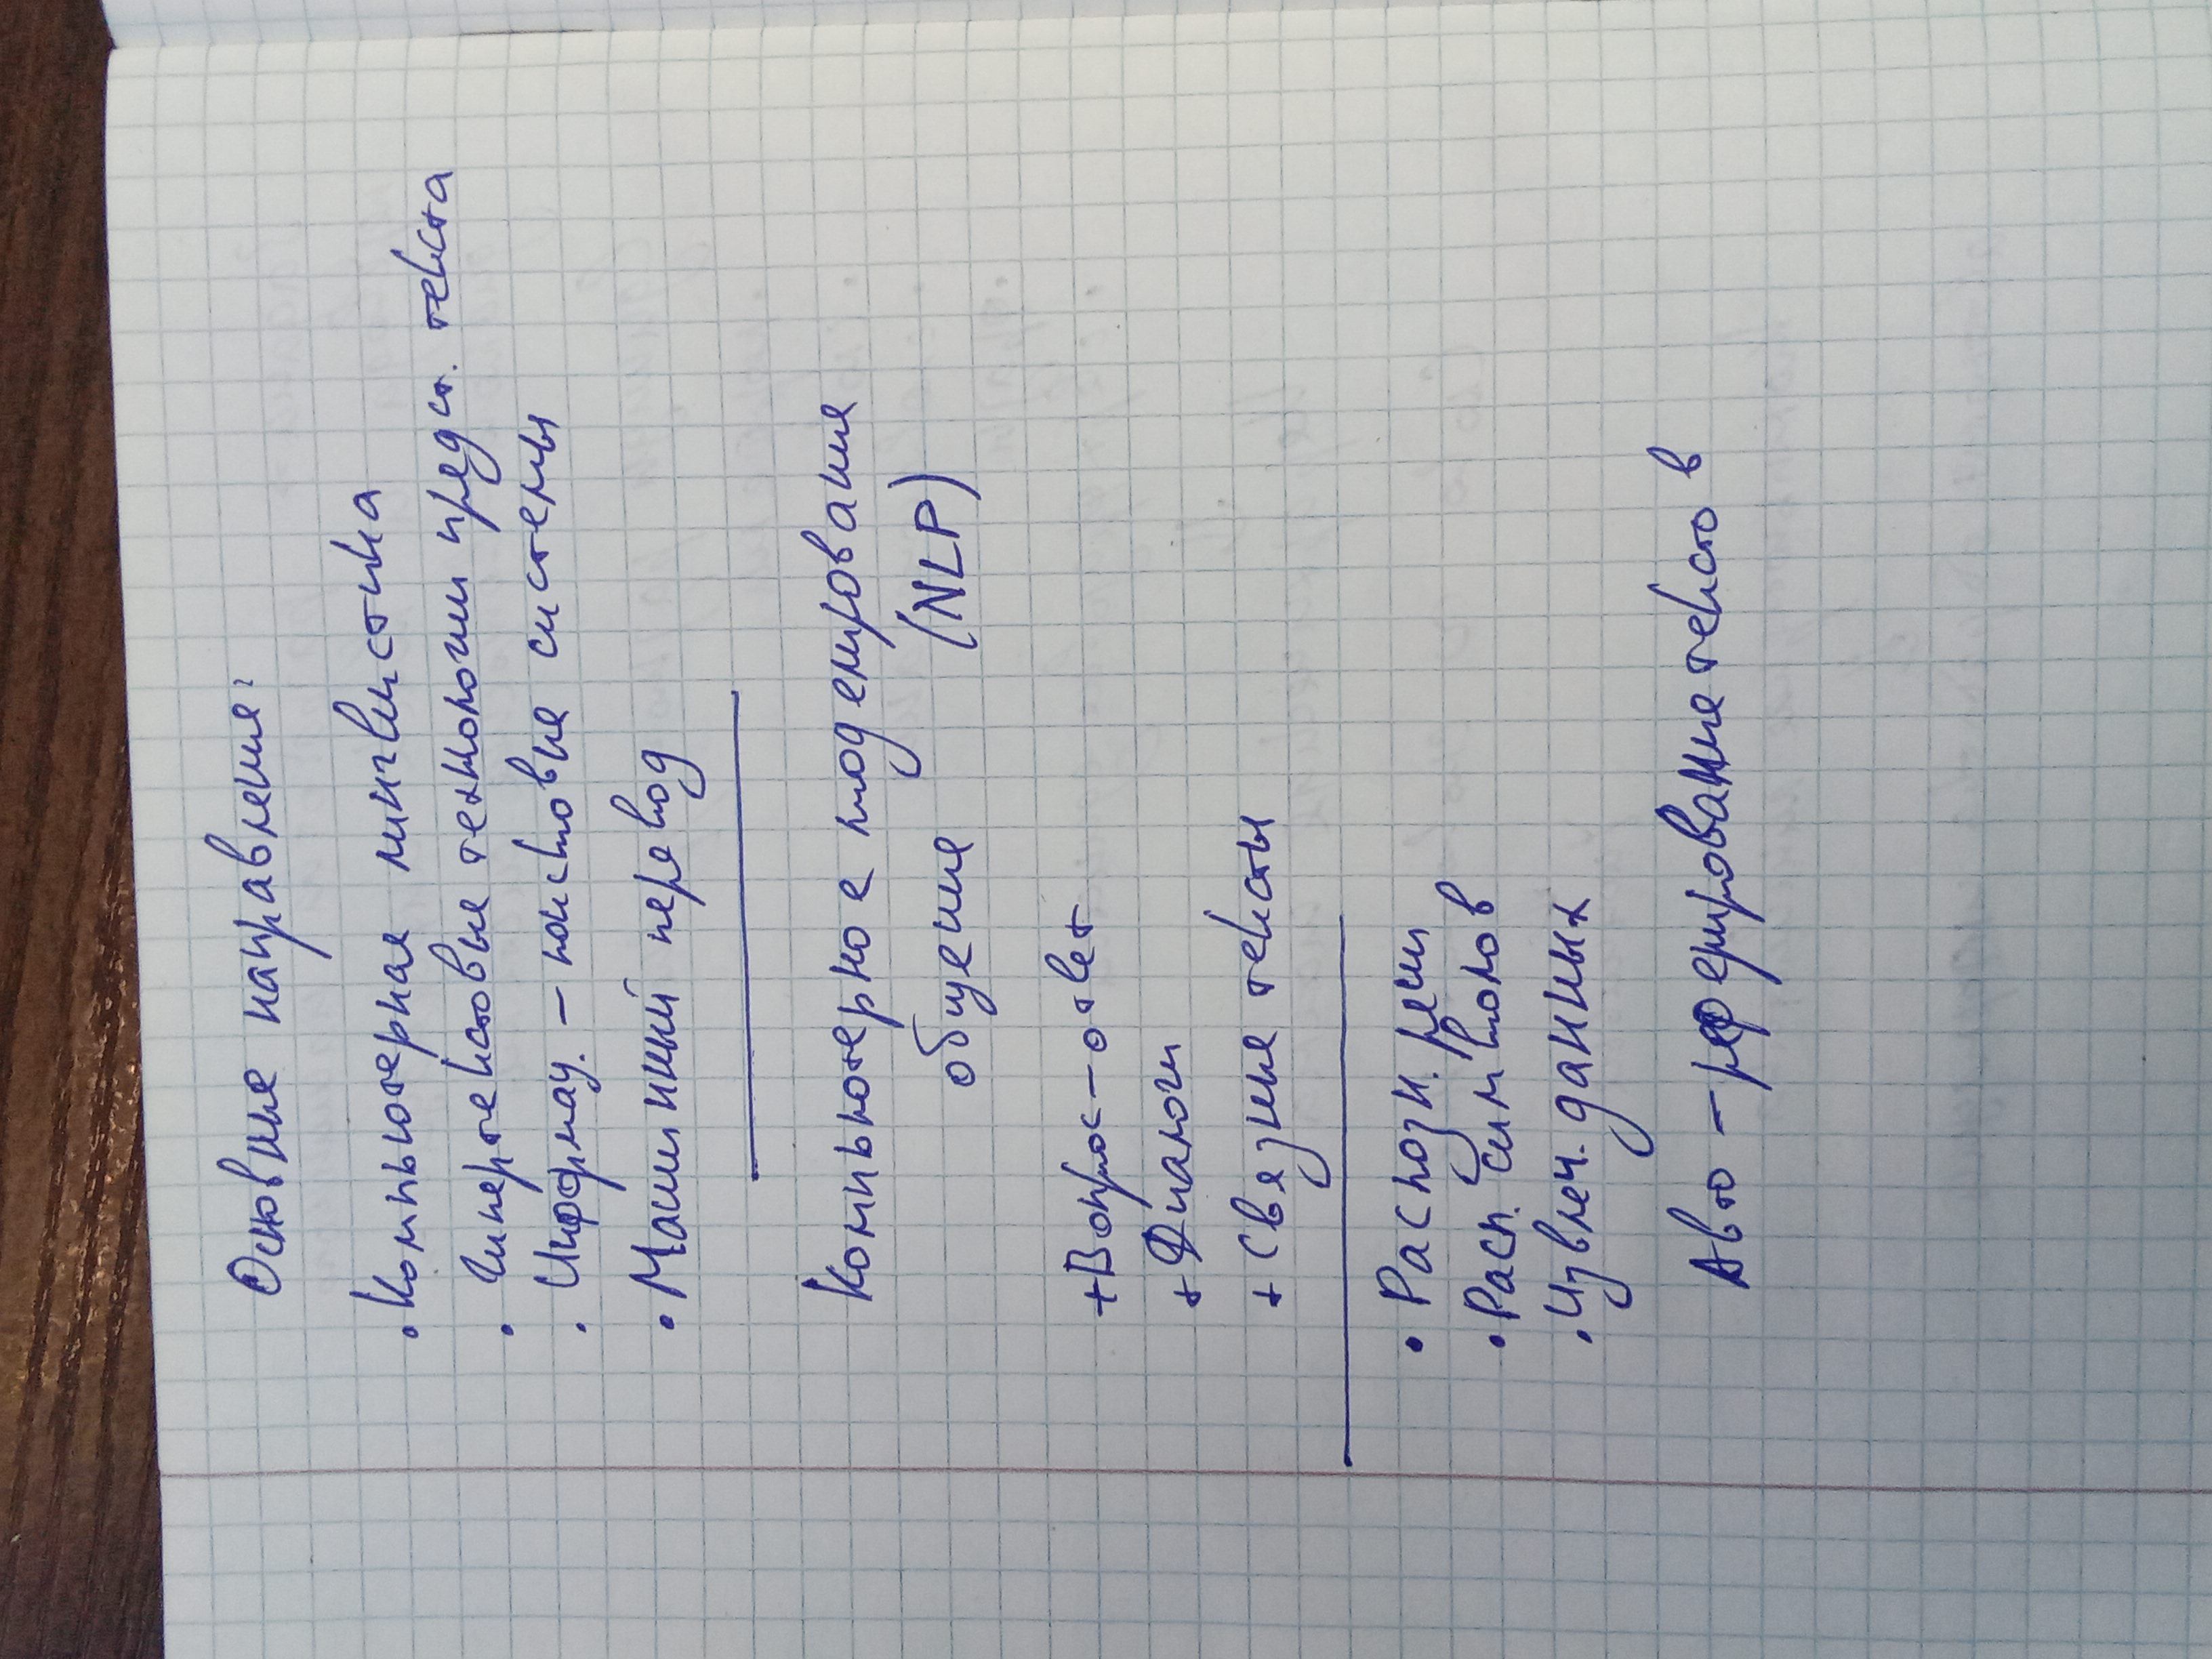 Основные направления:
• Компьютерная лингвистика
• Гипертекстовые технологии предст. текста
• Информац. - поисковые системы
• Машинный перевод
Компьютерное моделирование
общения (NLP)
+ Вопрос - ответ
+ Диалоги
+ Связные тексты
• Распозн. речи
• Расп. символов
• Извлеч. данных
Авто - реферирование текстов